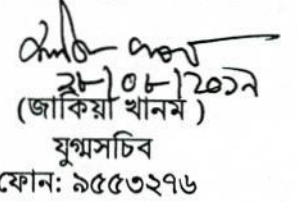 ২৮/০৮/২০১৭
(জাকিয়া খানম )
যুগ্মসচিব
ফোন: ৯৫৫৩২৭৬